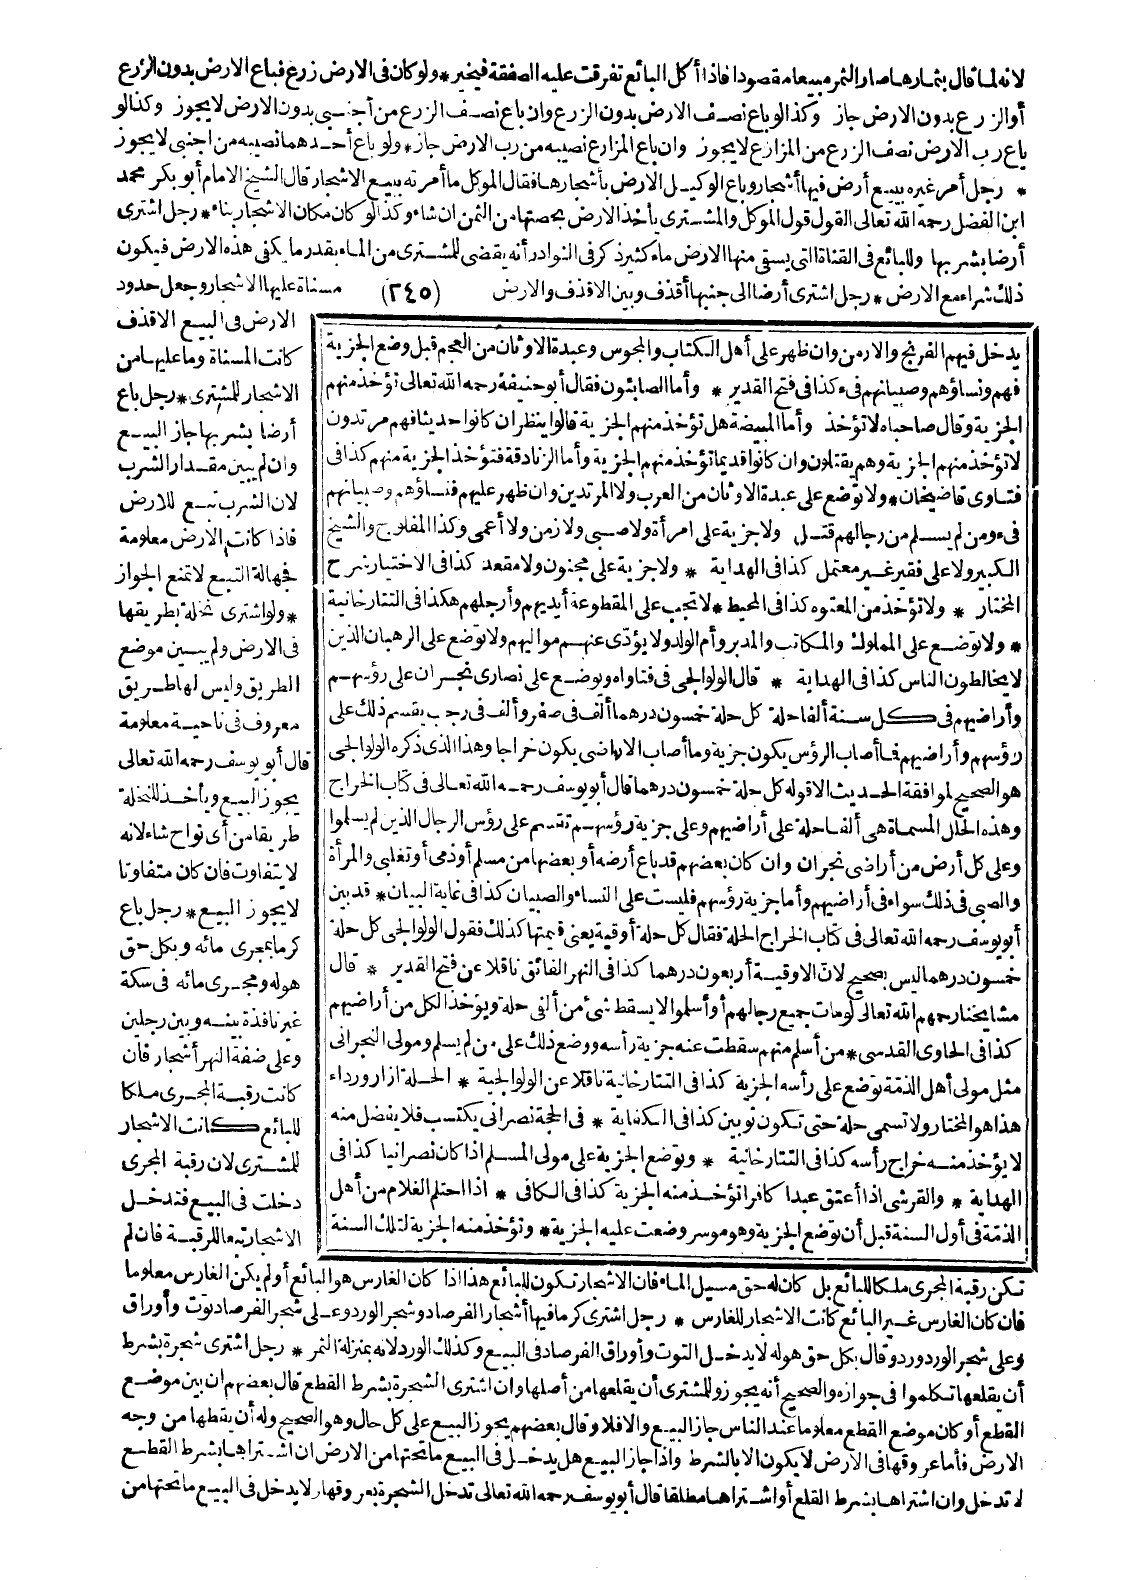 لانه لما قال بثمارها صار الثمر مبيعا مقصودا فاذا أكل البائع تفرقت عليه الصفقة فيخير * ولو كان فى الارض زرع فباع الارض بدون الزرع
أو الزرع بدون الارض جاز وكذا لو باع نصف الارض بدون الزرع وان باع نصف الزرع من أجنبى بدون الارض لا يجوز وكذا لو
باع رب الارض نصف الزرع من المزارع لا يجوز وان باع المزارع نصيبه من رب الارض جاز * ولو باع أحدهما نصيبه من اجنبى لا يجوز
* رجل أمر غيره ببيع أرض فيها أشجار وباع الوكيل الارض بأشجارها فقال الموكل ما أمرته ببيع الاشجار قال الشيخ الامام أبو بكر محمد
ابن الفضل رحمه الله تعالى القول قول الموكل والمشترى يأخذ الارض بحصتها من الثمن ان شاء وكذا لو كان مكان الاشجار بناء * رجل اشترى
أرضا بشربها وللبائع فى القناة التى يسقى منها الارض ماء كثير ذكر فى النوادر أنه يقضى للمشترى من الماء بقدر ما يكفى هذه الارض فيكون
ذلك شراء مع الارض * رجل اشترى أرضا الى جنبها أقذف وبين الاقذف والارض (٢٤٥) مسناة عليها الاشجار وجعل حدود
الارض فى البيع الاقذف
كانت المسناة وما عليها من
الاشجار للمشترى * رجل باع
أرضا بشربها جاز البيع
وان لم يبين مقدار الشرب
لان الشرب تبع للارض
فاذا كانت الارض معلومة
فجهالة التبع لا تمنع الجواز
* ولو اشترى نخلة بطريقها
فى الارض ولم يبين موضع
الطريق وليس لها طريق
معروف فى ناحية معلومة
قال أبو يوسف رحمه الله تعالى
يجوز البيع ويأخذ للنخلة
طريقا من أى نواح شاء لانه
لا يتفاوت فان كان متفاوتا
لا يجوز البيع * رجل باع
كرما بمجرى مائه وبكل حق
هو له ومجرى مائه فى سكة
غير نافذة بينه وبين رجلين
وعلى ضفة النهر أشجار فان
كانت رقبة المجرى ملكا
للبائع كانت الاشجار
للمشترى لان رقبة المجرى
دخلت فى البيع فتدخل
الاشجار تبعا للرقبة فان لم
تكن رقبة المجرى ملكا للبائع بل كان له حق مسيل الماء فان الاشجار تكون للبائع هذا اذا كان الغارس هو البائع أو لم يكن الغارس معلوما
فان كان الغارس غير البائع كانت الاشجار للغارس * رجل اشترى كرما فيها أشجار الفرصاد وشجر الورد وعلى شجر الفرصاد توت وأوراق
وعلى شجر الورد ورد وقال بكل حق هو له لا يدخل التوت وأوراق الفرصاد فى البيع وكذلك الورد لانه بمنزلة الثمر * رجل اشترى شجرة بشرط
أن يقلعها تكلموا فى جوازه والصحيح أنه يجوز وللمشترى أن يقلعها من أصلها وان اشترى الشجرة بشرط القطع قال بعضهم ان بين موضع
القطع أو كان موضع القطع معلوما عند الناس جاز البيع والا فلا وقال بعضهم يجوز البيع على كل حال وهو الصحيح وله أن يقطها من وجه
الارض فأما عروقها فى الارض لا يكون الا بالشرط واذا جاز البيع هل يدخل فى البيع ما تحتها من الارض ان اشتراها بشرط القطع
لا تدخل وان اشتراها بشرط القلع أو اشتراها مطلقا قال أبو يوسف رحمه الله تعالى تدخل الشجرة بعروقها ولا يدخل فى البيع ما تحتها من
يدخل فيهم الفرنج والارمن وان ظهر على أهل الكتاب والمجوس وعبدة الاوثان من العجم قبل وضع الجزية
فهم ونساؤهم وصبيانهم فىء كذا فى فتح القدير * وأما الصابئون فقال أبو حنيفة رحمه الله تعالى تؤخذ منهم
الجزية وقال صاحباه لا تؤخذ وأما المبيضة هل تؤخذ منهم الجزية قالوا ينظر ان كانوا حديثا فهم مرتدون
لا تؤخذ منهم الجزية وهم يقتلون وان كانوا قديما تؤخذ منهم الجزية وأما الزنادقة فتؤخذ الجزية منهم كذا فى
فتاوى قاضيخان * ولا توضع على عبدة الاوثان من العرب ولا المرتدين وان ظهر عليهم فنساؤهم وصبيانهم
فىء ومن لم يسلم من رجالهم قتل ولا جزية على امرأة ولا صبى ولا زمن ولا أعمى وكذا المفلوج والشيخ
الكبير ولا على فقير غير معتمل كذا فى الهداية * ولا جزية على مجنون ولا مقعد كذا فى الاختيار شرح
المختار * ولا تؤخذ من المعتوه كذا فى المحيط * لا تجب على المقطوعة أيديهم وأرجلهم هكذا فى التتارخانية
* ولا توضع على المملوك والمكاتب والمدبر وأم الولد ولا يؤدّى عنهم مواليهم ولا توضع على الرهبان الذين
لا يخالطون الناس كذا فى الهداية * قال الولوالجى فى فتاواه وتوضع على نصارى نجران على رؤسهم
وأراضيهم فى كل سنة ألفا حلة كل حلة خمسون درهما ألف فى صفر وألف فى رجب يقسم ذلك على
رؤسهم وأراضيهم فما أصاب الرؤس يكون جزية وما أصاب الاراضى يكون خراجا وهذا الذى ذكره الولوالجى
هو الصحيح لموافقة الحديث الا قوله كل حلة خمسون درهما قال أبو يوسف رحمه الله تعالى فى كتاب الخراج
وهذه الحلل المسماة هى ألفا حلة على أراضيهم وعلى جزية رؤسهم تقسم على رؤس الرجال الذين لم يسلموا
وعلى كل أرض من أراضى نجران وان كان بعضهم قد باع أرضه أو بعضها من مسلم أو ذمى أو تغلبى والمرأة
والصبى فى ذلك سواء فى أراضيهم وأما جزية رؤسهم فليست على النساء والصبيان كذا فى غاية البيان * قد بين
أبو يوسف رحمه الله تعالى فى كتاب الخراج الحلة فقال كل حلة أوقية يعنى قيمتها كذلك فقول الولوالجى كل حلة
خمسون درهما ليس بصحيح لان الاوقية أربعون درهما كذا فى النهر الفائق ناقلا عن فتح القدير * قال
مشايخنا رحمهم الله تعالى لو مات جميع رجالهم أو أسلموا لا يسقط شئ من ألفى حلة ويؤخذ الكل من أراضيهم
كذا فى الحاوى القدسى * من أسلم منهم سقطت عنه جزية رأسه ووضع ذلك على من لم يسلم ومولى النجرانى
مثل مولى أهل الذمّة توضع على رأسه الجزية كذا فى التتارخانية ناقلا عن الولوالجية * الحلة ازار ورداء
هذا هو المختار ولا تسمى حلة حتى تكون ثوبين كذا فى الكفاية * فى الحجة نصرانى يكتسب فلا يفضل منه
لا يؤخذ منه خراج رأسه كذا فى التتارخانية * وتوضع الجزية على مولى المسلم اذا كان نصرانيا كذا فى
الهداية * والقرشى اذا أعتق عبدا كافرا تؤخذ منه الجزية كذا فى الكافى * اذا احتلم الغلام من أهل
الذمّة فى أول السنة قبل أن توضع الجزية وهو موسر وضعت عليه الجزية * وتؤخذ منه الجزية لتلك السنة